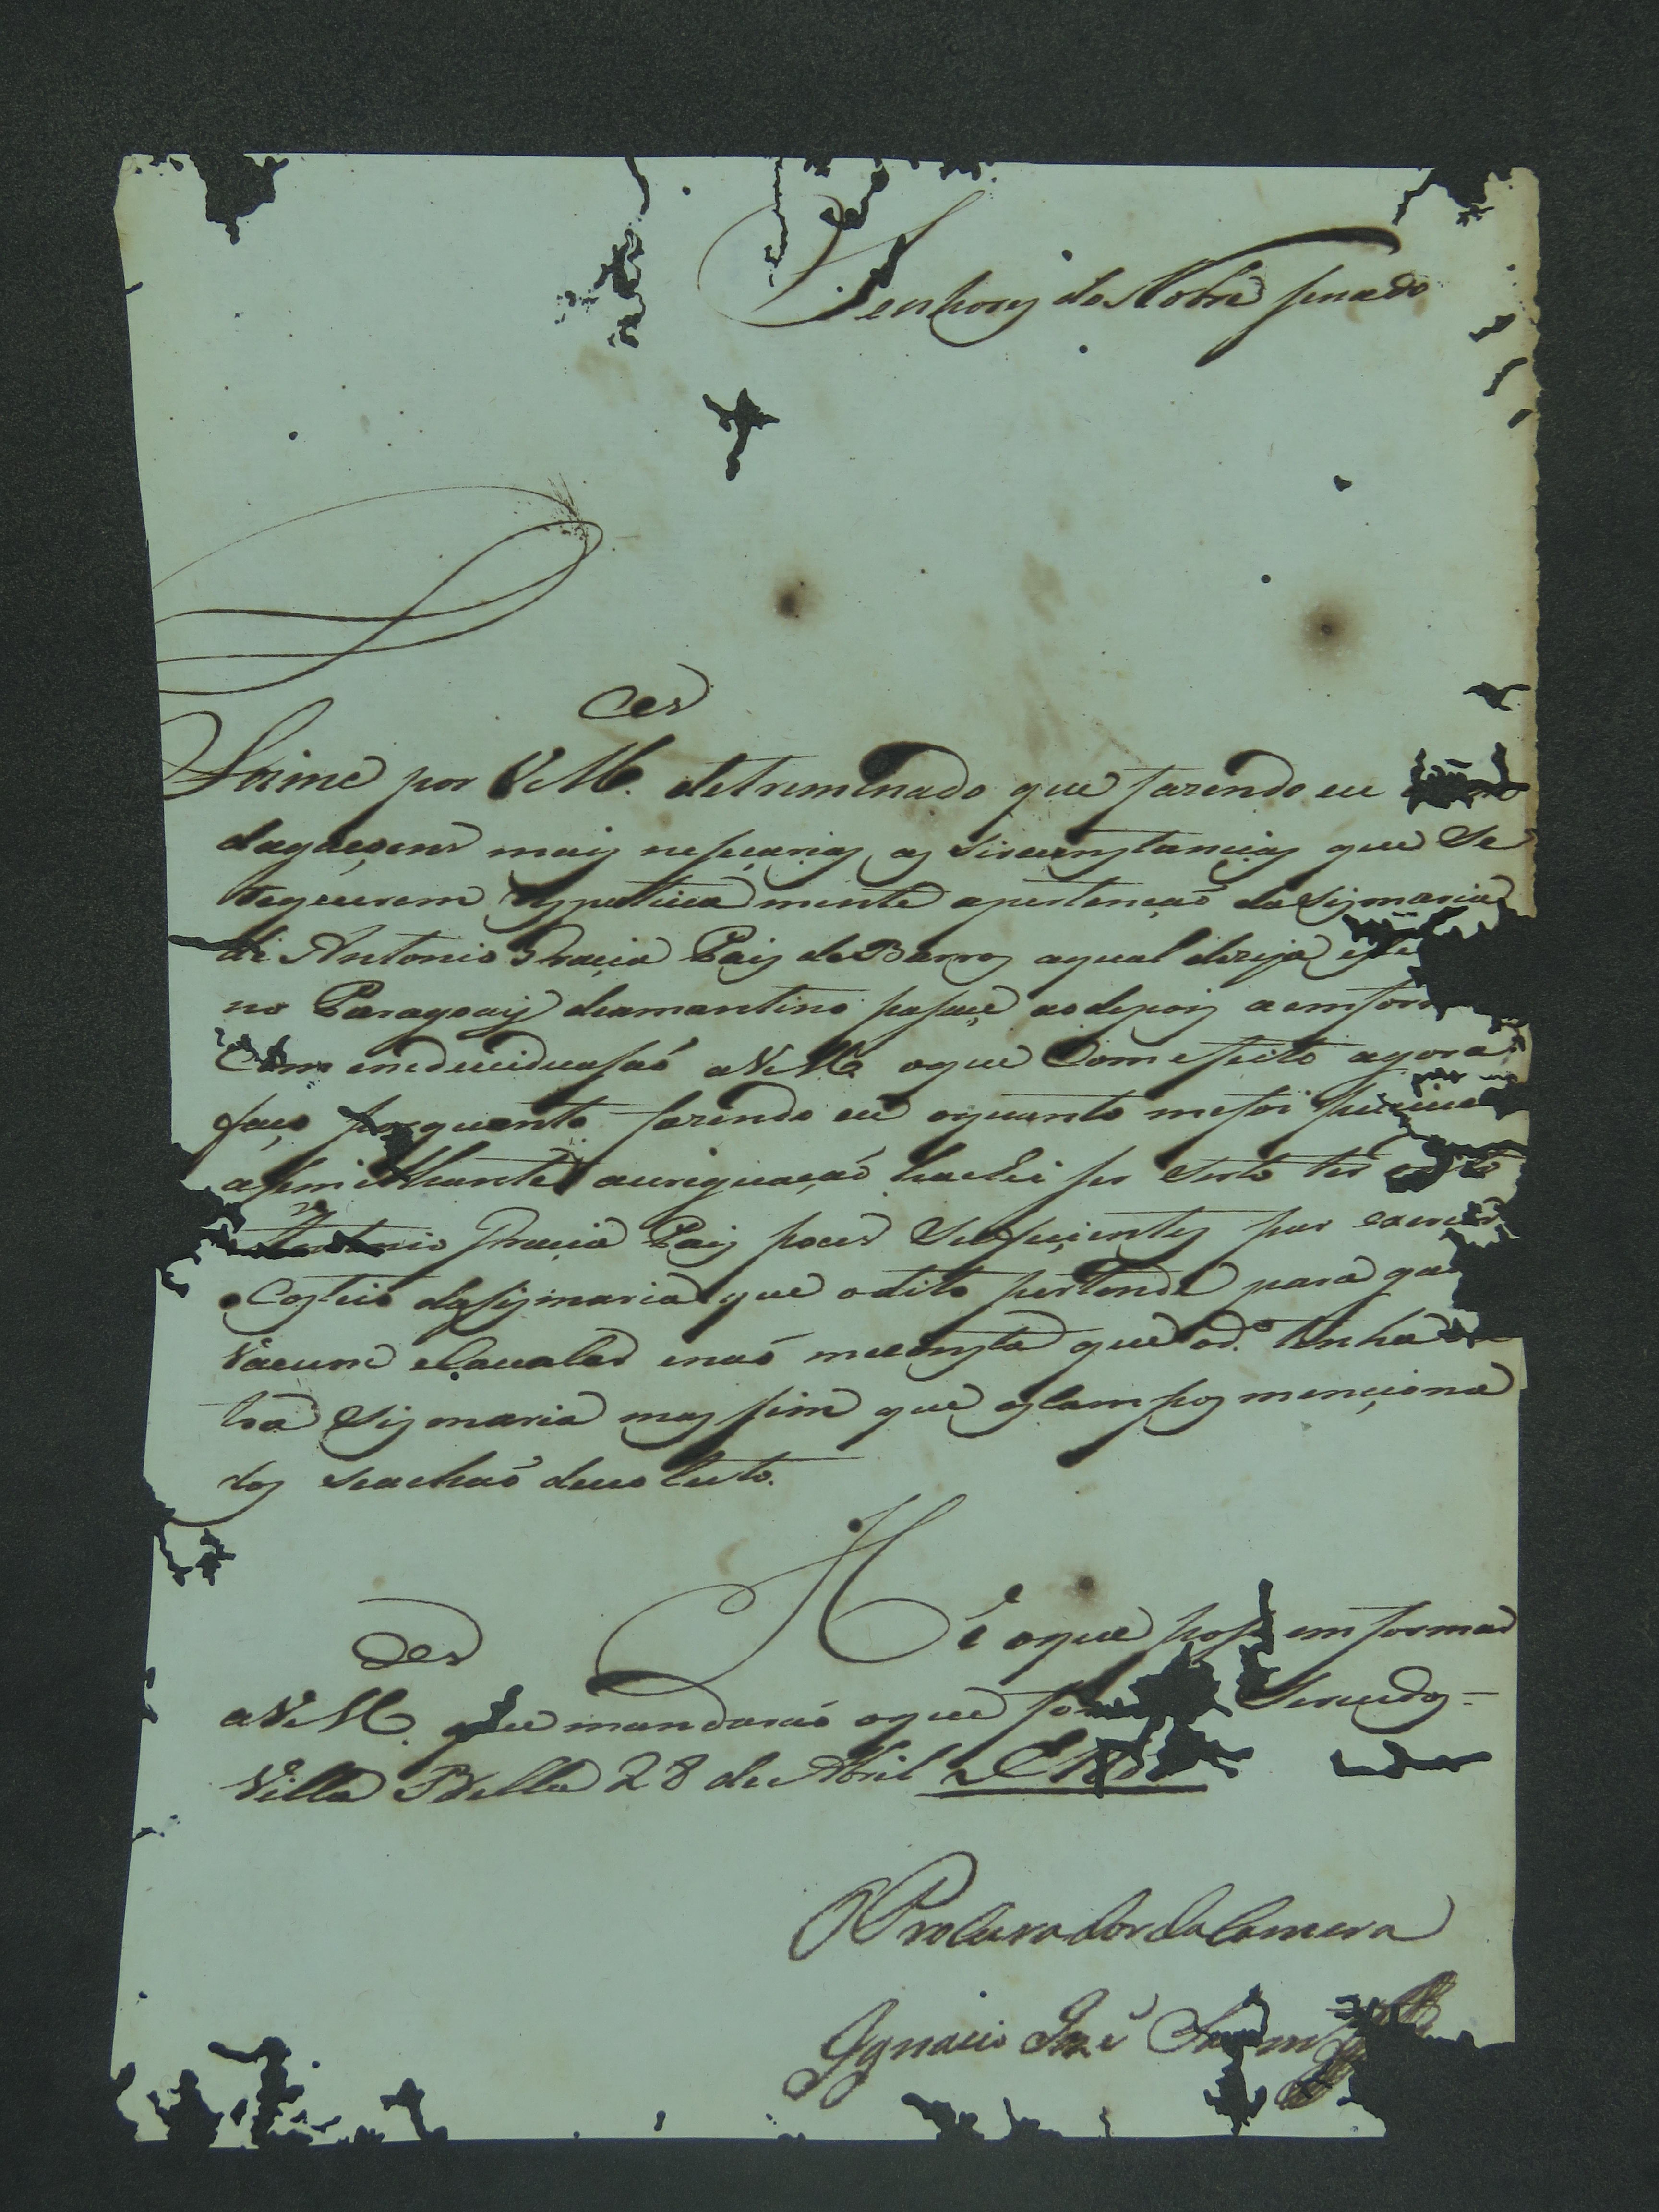 Senhores do Nobre senado
ces
Foime por VM. detreminado que fazendo eu
dagaçoens mais nesecarias as sircunstancias que se
requerem Respetiva mente apertenção da sismaria
de Antonio Graçia Pais de Barros aqual dezeja
no Paragoay diamantino pasase aodepois aemfor
Com endeviduasaõ aVM. oque Com efeito agora
faço porquanto fazendo eu oquanto mefoi
asemilhante averiguaçaõ hachei ser serto ter
Antonio Graçia Pais poces Suficientes par exercer
oCosteio dasismaria que odito pertende para ga
vacum eCavalar enaõ meConsta que od.º tenha
tra Sismaria mas sim que osCampos mençiona
dos seachaõ devoluto.
Hé oque poso emformar
ces
aVM. que mandaraõ oque for Servidos=
Villa Bella 28 de Abril de
O Procurador da Camera
Ignacio Joze